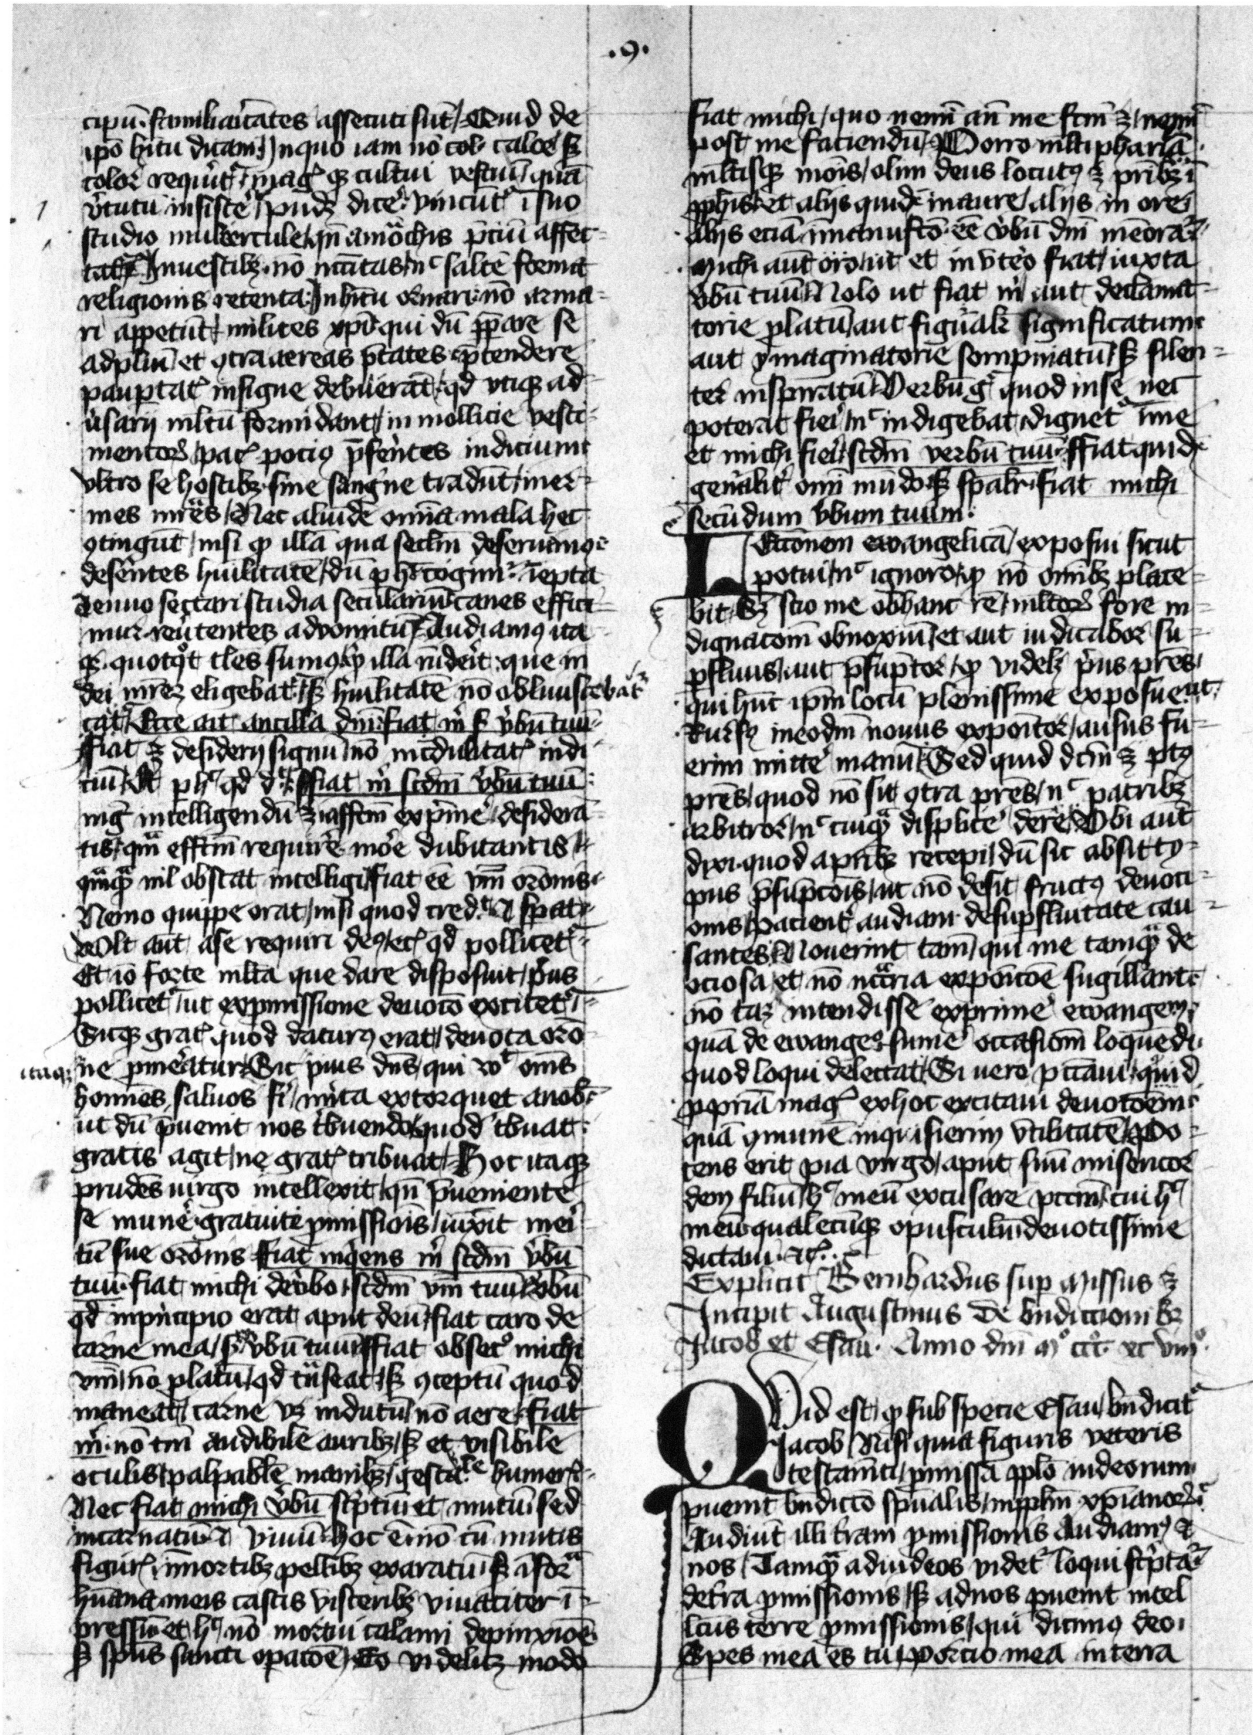 .9.
cipū familiaritates assecuti sūt / Quid de
ipō hitu dicam In quo iam nō col' calor' sꝫ
color requirit' / mag' qꝫ cultui vestiū quā
v'tutū insistit' / pudꝫ dice' vincūt' ī suo
studio muliercule / qn̄ a mōchis p'ciū affec-
tat' In vestibꝫ nō nc̄citas / n' saltē forma
religionis retenta In hitu ornari nō arma-
ri appetūt / milites xp̄i qui dū p̄pare se
ad p'liū et ꝯtra aereas p'tates p'tendere
paup'tat' insigne debuerāt qd' vtiqꝫ ad-
u'sarij ml'tū formidant / in mollicie vesti-
mentorꝫ pac' poci9 p'ferētes indicium
vltro se hostibꝫ sine sangr̄e tradūt / iner-
mes nr̄ēs / Nec aliūde omīa mala hec
ꝯtingūt / nisi qꝫ illā qua sec'lm deseruimꝰ
deserētes huīlitatē / dū p h' cogim' īepta
denuo sectari studia seculariū canes effici-
mur reu'tentes ad vomitū Audiamꝰ ita-
qꝫ quotqt' tl'es sumꝰ / qꝫ illa rn̄derit que in
dei mr̄eꝫ eligebat' sꝫ huīlitatē nō obliuiscebat'
Ecce ait ancilla dm̄ fiat m' s' v'bū tuū
ffiat ꝫ desiderij signū nō incredulitat' indi-
ciū Et p h' qd' d' ffiat m' scdm̄ v'bū tuū
mg' intelligendū ꝫ affcm̄ exp'me' desiderā-
tis qm̄ effcm̄ requirē mōe dubitantis
qm̄qꝫ nil obstat intelligi fiat ēē vm̄ orōnis
Nemo quippe orat / nisi quod cred' ⁊ sp̄at
Volt aut̄ a se requiri deꝰ ec̄ qd' pollicet'
Et iō forte ml'ta que dare disposuit / p'us
pollicet' ut ex pmissione deuoc̄o excitet'
Sicqꝫ grat' quod daturꝰ erat / deuota orō-
itaqꝫ ne pmeatur Sic pius dn̄s qui vl't om̄s
homīes saluos fi' m'ita extorquet a nob'
ut dū p'uenit nos t'buendo quod t'buat
gratis agit / ne grat' tribuat Hoc itaqꝫ
prudēs virgo intellexit / qn̄ p'ueniente
se mune' gratuite pmissiōis / iūxit meri-
tū sue orōnis ffiat inqens m' scdm̄ v'bū
tuū fiat michi de v'bo scdm̄ vm̄ tuū v'bū
qd' in p'ncipio erat aput deū / fiat caro de
carne mea / s' v'bū tuū ffiat obsec° michi
vm̄ nō platū qd' t'nseat / sꝫ ꝯceptū quod
maneat / carne vꝫ indutū nō aere fiat
m' nō tm̄ audibile auribꝫ sꝫ et visibile
oculis palpabile manibꝫ gestabile humer'
Nec fiat michi v'bū sc'ptū et mutū sed
incarnatū ⁊ viuū Hoc ē nō cū mutis
figur' mortibꝫ pellibꝫ exaratū sꝫ ī fora
hūana meis castis visceribꝫ viuaciter ī-
pressū et h' nō mortui calami depinxiōe
sꝫ sp̄us sancti op̄acōe / Eo videlicꝫ modo
fiat michi quo nemī an̄ me fcm̄ ꝫ / nemī
post me faciendū Porro ml'tiphariā
ml'tisqꝫ mōis / olim deus locutꝰ ꝫ pr̄ibꝫ ī
pphis et alijs quid' in aure / alijs in ore
alijs eciā in manu fc̄o ēē v'bū dm̄ memorat'
Michi aut̄ oro / ut et in vt'o fiat / iuxta
v'bū tuū Nolo ut fiat m' aut declama-
torie platū aut figural'r significatum
aut ymaginatorie sompniatū / sꝫ silen-
ter inspiratū Verbū g' quod in se nec
poterat fieri / n' indigebat dignet' in me
et michi fieri scdm̄ verbū tuū ffiat quid'
gen'alit' omī mūdo sꝫ sp̄alr' fiat michi
secūdum v'bum tuum
Lecc̄onem ewangelicā / exposui sicut
potui / n' ignoro / qꝫ nō omībꝫ place-
bit Sꝫ scio me ob hanc rē / ml'torꝫ fore in-
dignacōm obnoxiū et aut iudicabor su-
pfluus / aut p'sumptor / qꝫ videlꝫ p'us pr̄es
qui hūt ip̄m locū plenissime exposuerūt
Rursꝫ in eodm̄ nouus expo'tor / ausus fu-
erim mitte' manū Sed quid dcm̄ ꝫ p'ꝰ
pr̄es / quod nō sit ꝯtra pr̄es / n' patribꝫ
arbitror / n' cuiqꝫ displice' de'ē Vbi aut̄
dixi quod a pr̄ibꝫ recepi / dū sic absit ty-
pus p'sūpcōis / ut nō desit fructꝰ deuoci-
onis / pacient' audiam de supfluitate cau-
santes Nouerint tam̄ / qui me tamqꝫ de
ociosa et nō nc̄c̄aria expoc̄oe sugillant
nō tā intendisse exprime' ewangelm̄
quā de ewange° sume' occasiom̄ loquēdi
quod loqui delectat Si vero pccaui quid
ppriā mag' ex hoc excitaui deuoc̄oem
quā ꝯmunē inq'sierim vtilitatē Po-
tens erit pia virgo / aput suū misericor-
dem filiū h' meū excusare pccm̄ cui h'
meū qualecūqꝫ opusculū deuotissime
dictaui ⁊c'
Explicit Bernhardus sup Missus ꝫ
Incipit Augustinus de bn̄diccionibꝫ
Jacob et Esau Anno dm̄ m° ccc° xc viii°
Quid est / qꝫ sub specie Esau / bn̄dicit'
Jacob Nisi quia figuris veteris
testamēti / pmissa pplō iudeorum
puenit bn̄diccō sp̄ualis / in pplm̄ xp̄ianorꝫ
Audiūt illi t'ram pmissionis Audiamꝰ ⁊
nos / Tamqꝫ ad iudeos videt' loqui sc'pta'
de t'ra pmissionis / sꝫ ad nos puenit intel-
lcūs terre pmissionis / qui dicimꝰ deo
Spes mea es tu / Porcio mea in terra